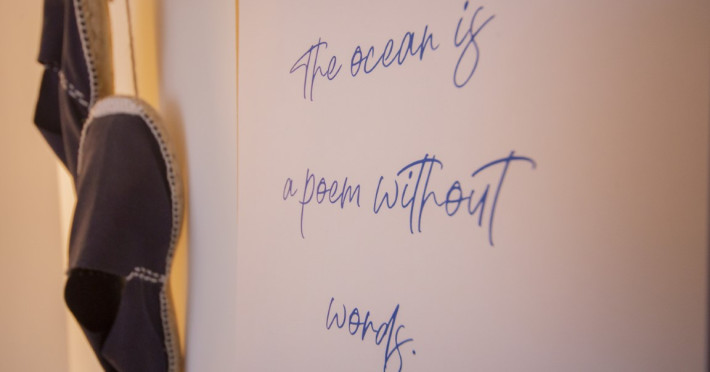 The ocean is
a poem without
words.